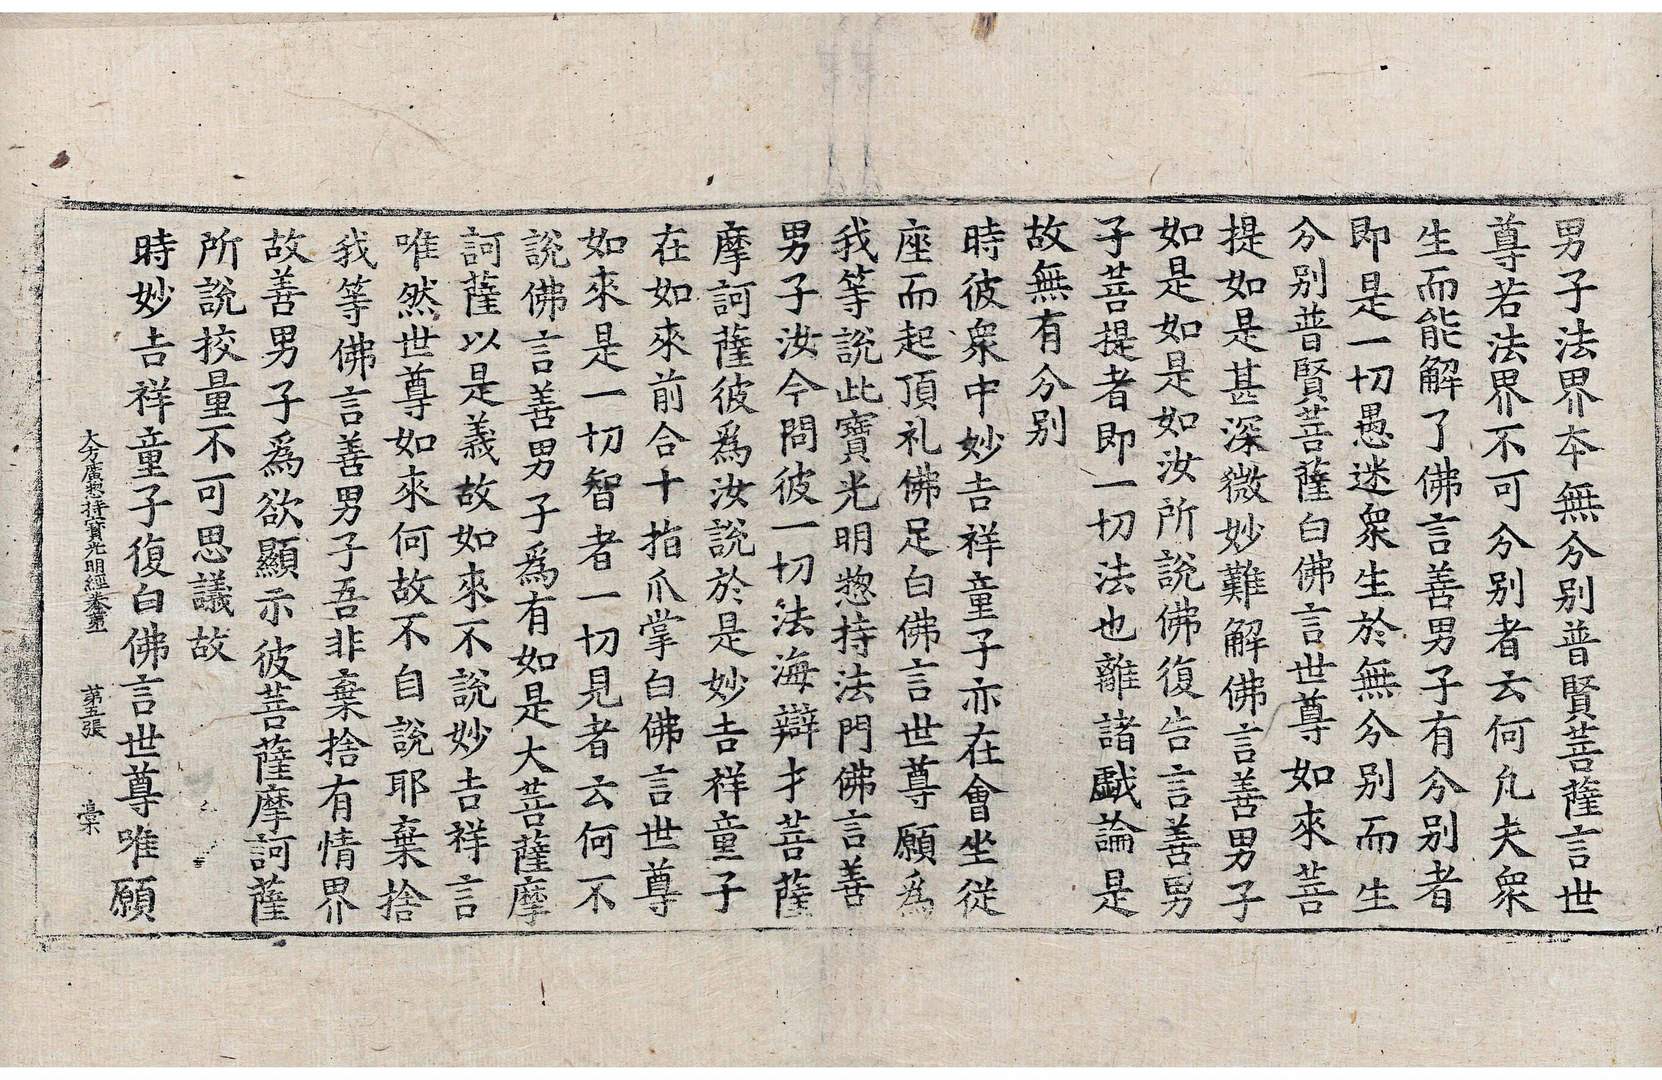 男子法界本無分别普賢菩薩言世
尊若法界不可分别者云何凡夫衆
生而能解了佛言善男子有分别者
即是一切愚迷衆生於無分别而生
分别普賢菩薩白佛言世尊如來菩
提如是甚深微妙難解佛言善男子
如是如是如汝所說佛復告言善男
子菩提者即一切法也離諸戱論是
故無有分别
時彼衆中妙吉祥童子亦在會坐從
座而起頂礼佛足白佛言世尊願爲
我等說此寶光明惣持法門佛言善
男子汝今問彼一切法海辯才菩薩
摩訶薩彼爲汝說於是妙吉祥童子
在如來前合十指爪掌白佛言世尊
如來是一切智者一切見者云何不
說佛言善男子爲有如是大菩薩摩
訶薩以是義故如來不說妙吉祥言
唯然世尊如來何故不自說耶棄捨
我等佛言善男子吾非棄捨有情界
故善男子爲欲顯示彼菩薩摩訶薩
所說挍量不可思議故
時妙吉祥童子復白佛言世尊唯願
大方廣惣持寶光明經卷第五 第五張 槀